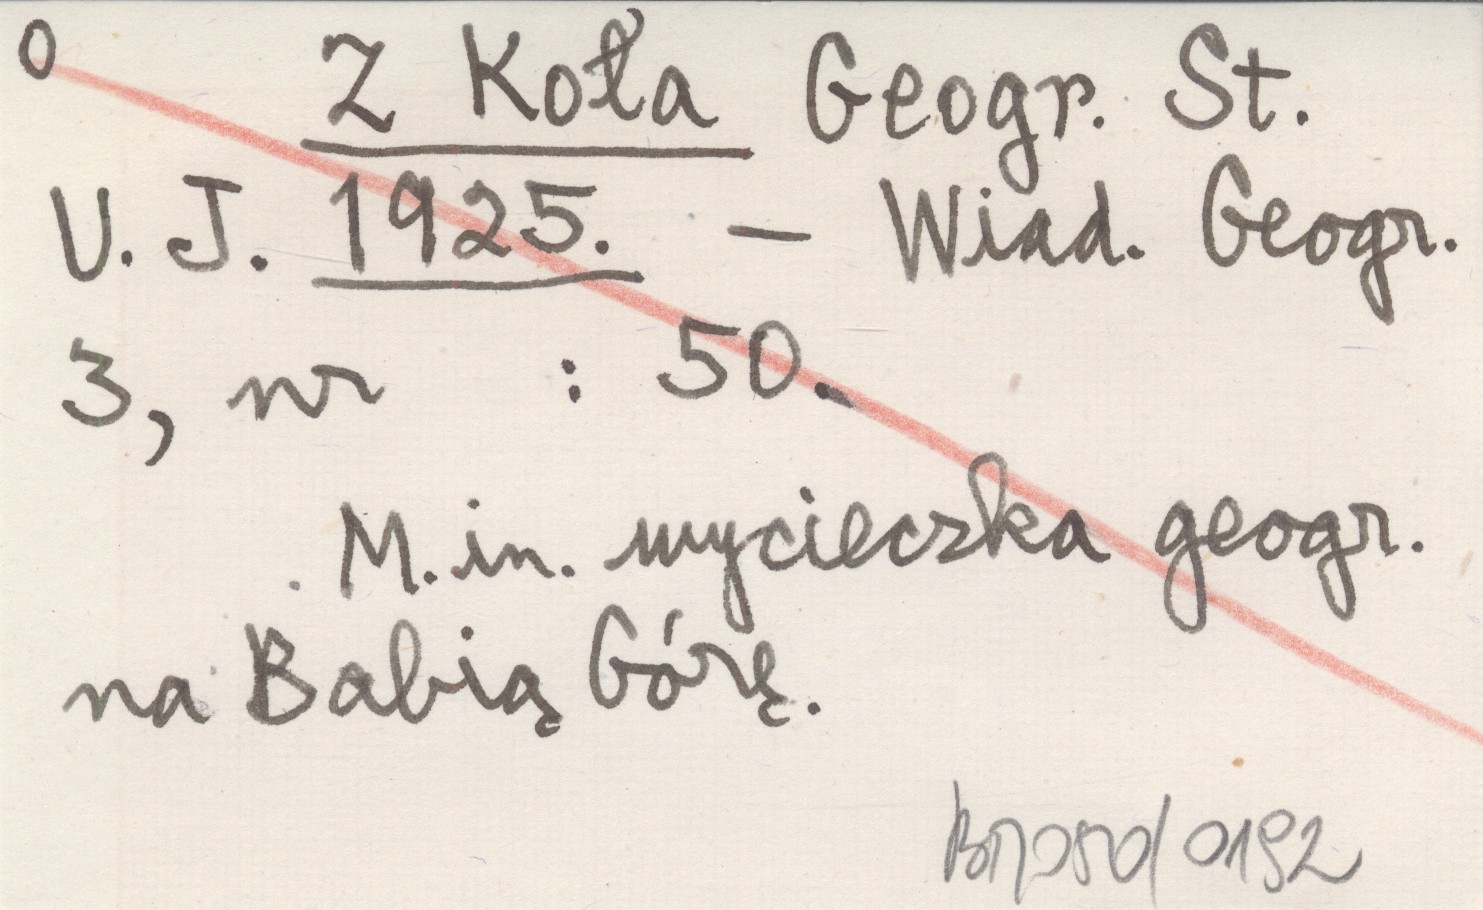 0 Z Koła Geogr. St.
U. J. 1925. — Wiad. Geogr.
3, nr : 50.
M. in. wycieczka geogr.
na Babią Górę.
0192